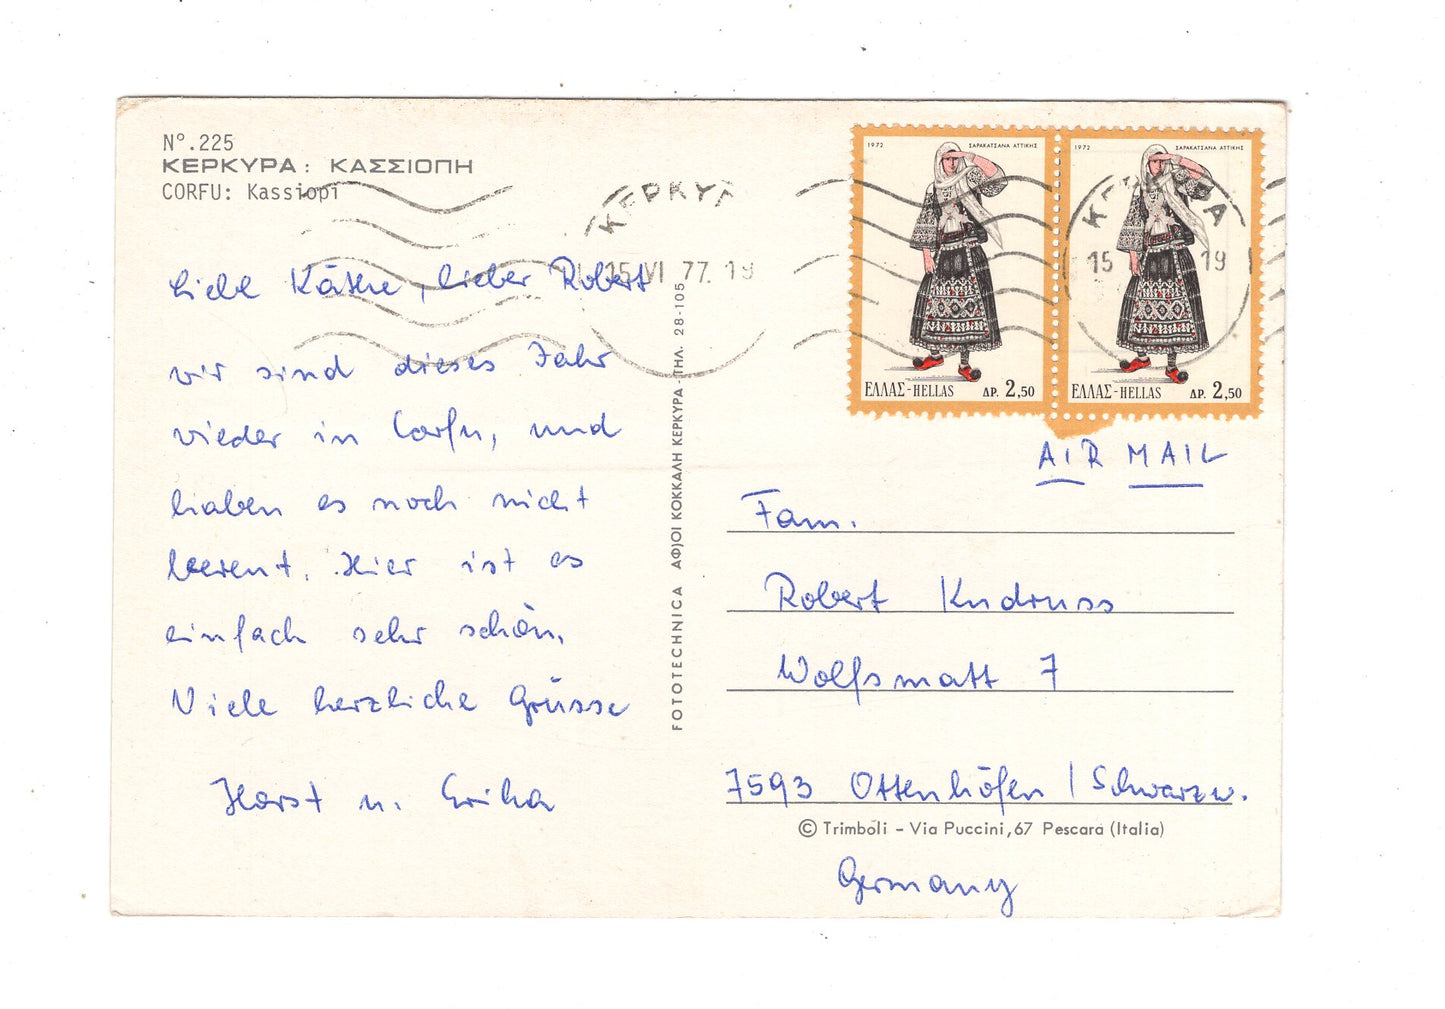 N°.225
ΚΕΡΚΥΡΑ: ΚΑΣΣΙΟΠΗ
CORFU: Kassiopi
ΚΕΡΚΥΡ
15 VI 77. 19
1972 ΣΑΡΑΚΑΤΣΑΝΑ ΑΤΤΙΚΗΣ
ΕΛΛΑΣ-HELLAS ΔΡ. 2,50
1972 ΣΑΡΑΚΑΤΣΑΝΑ ΑΤΤΙΚΗΣ
ΕΛΛΑΣ-HELLAS ΔΡ. 2,50
ΚΕΡΚΥΡΑ
15 19
Liebe Käthe, lieber Robert
wir sind dieses Jahr
wieder in Corfu, und
haben es noch nicht
bereut. Hier ist es
einfach sehr schön.
Viele herzliche Grüsse
Horst u. Erika
FOTOTECHNICA ΑΦ)ΟΙ ΚΟΚΚΑΛΗ ΚΕΡΚΥΡΑ - ΤΗΛ. 28-105
AIR MAIL
Fam.
Robert Kndruss
Wolfsmatt 7
7593 Ottenhöfen / Schwarzw.
© Trimboli - Via Puccini, 67 Pescara (Italia)
Germany